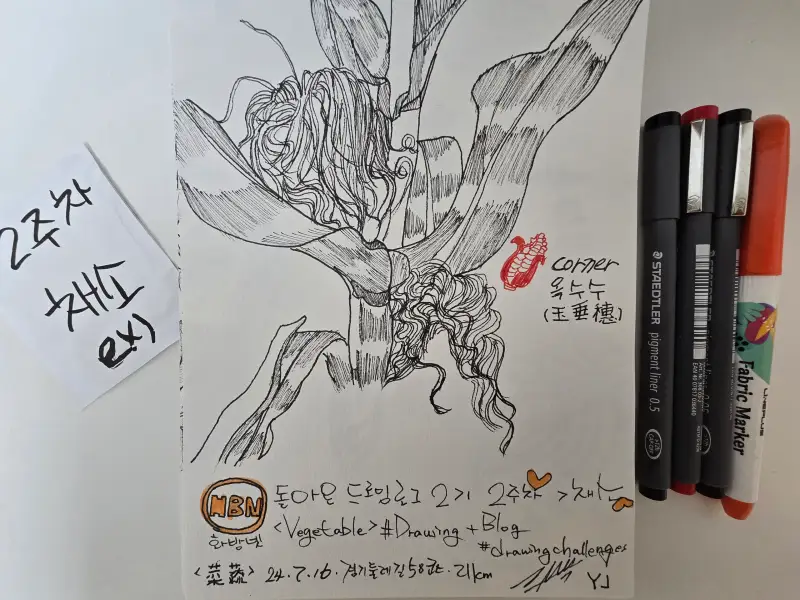 2주차
채소
ex)
corner
옥수수
(玉垂穗)
HBN
화방넷
돌아온 드로잉로그 2기 2주차 >채소
<Vegetable>#Drawing + Blog
#drawingchallenges
<菜蔬> 24.7.16. 경기둘레길58코스.21km
YJ
STAEDTLER
pigment liner 0.5
Fabric Marker